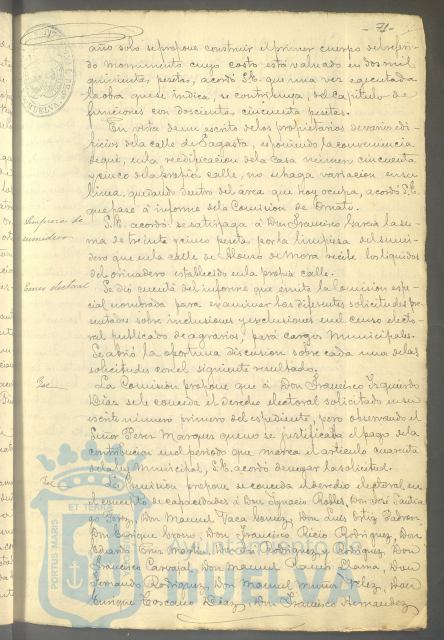 -71-
año solo se propone construir el primer cuerpo del referido monumento cuyo costo está valuado en dos mil
quinientas pesetas, acordó S.E. que una vez ejecutada
la obra que se indica, se contribuya, del Capítulo de
funciones con doscientas cincuenta pesetas.
En vista de un escrito de los propietarios de varios edificios de la calle de Sagasta, exponiendo la conveniencia
de que, en la reedificacion de la casa número cincuenta
y cinco de la propia calle, no se haga variacion en su
linea, quedando dentro del area que hoy ocupa, acordó S.E.
que pase á informe de la Comision de Ornato.
Limpieza de
sumidero
S.E. acordó se satisfaga á Don Francisco Garcia la suma de treinta y cinco pesetas, por la limpieza del sumidero que en la calle de Alonso de Mora recibe los liquidos
del orinadero establecido en la propia calle.
Censo electoral
Se dió cuenta del informe que emite la Comision especial nombrada para examinar las diferentes solicitudes presentadas sobre inclusiones y exclusiones en el censo electoral publicado de agrarias, para cargos Municipales.
Se abrió la oportuna discusion sobre cada una de las
solicitudes con el siguiente resultado:
La Comision propone que á Don Francisco Izquierdo
Diaz se le conceda el derecho electoral solicitado en su
escrito número primero del expediente, pero observando el
Señor Perez Marquez que no se justificaba el pago de la
contribucion en el periodo que marca el articulo cuarenta
de la ley Municipal, S.E. acordó denegar la solicitud.
La Comision propone se conceda el derecho electoral en
el concepto de capacidades á Don Ignacio Robles, Don José Santiago
Don Manuel Vaca Gomez, Don Luis Ortiz
Don Enrique Don Francisco Rodriguez, Don
Eduardo Don
Francisco Carvajal, Don Manuel Ramos Llama, Don
Fernando Rodriguez, Don Manuel Muñoz Velez, Don
Enrique Toscano Diaz, Don Francisco Hernandez
HUELVA
PORTUS MARIS
ET TERRE
Ayuntamiento de
Huelva